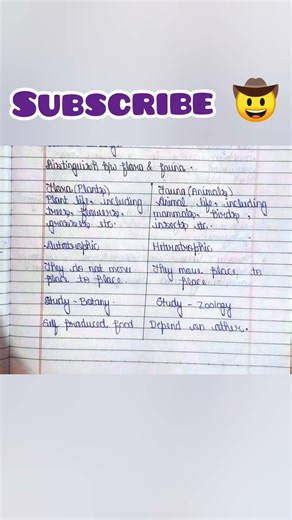 SUBSCRIBE
Distinguish b/w flora & fauna.
Flora (Plants)
Plant life, including
trees, flowers,
grasses etc.
Fauna (Animals)
Animal life, including
mammals, birds,
insects etc.
Autotrophic
Hetrotrophic
They do not move
place to place
They move place to
place
Study - Botany.
Study - Zoology
Self produced food
Depend on other.